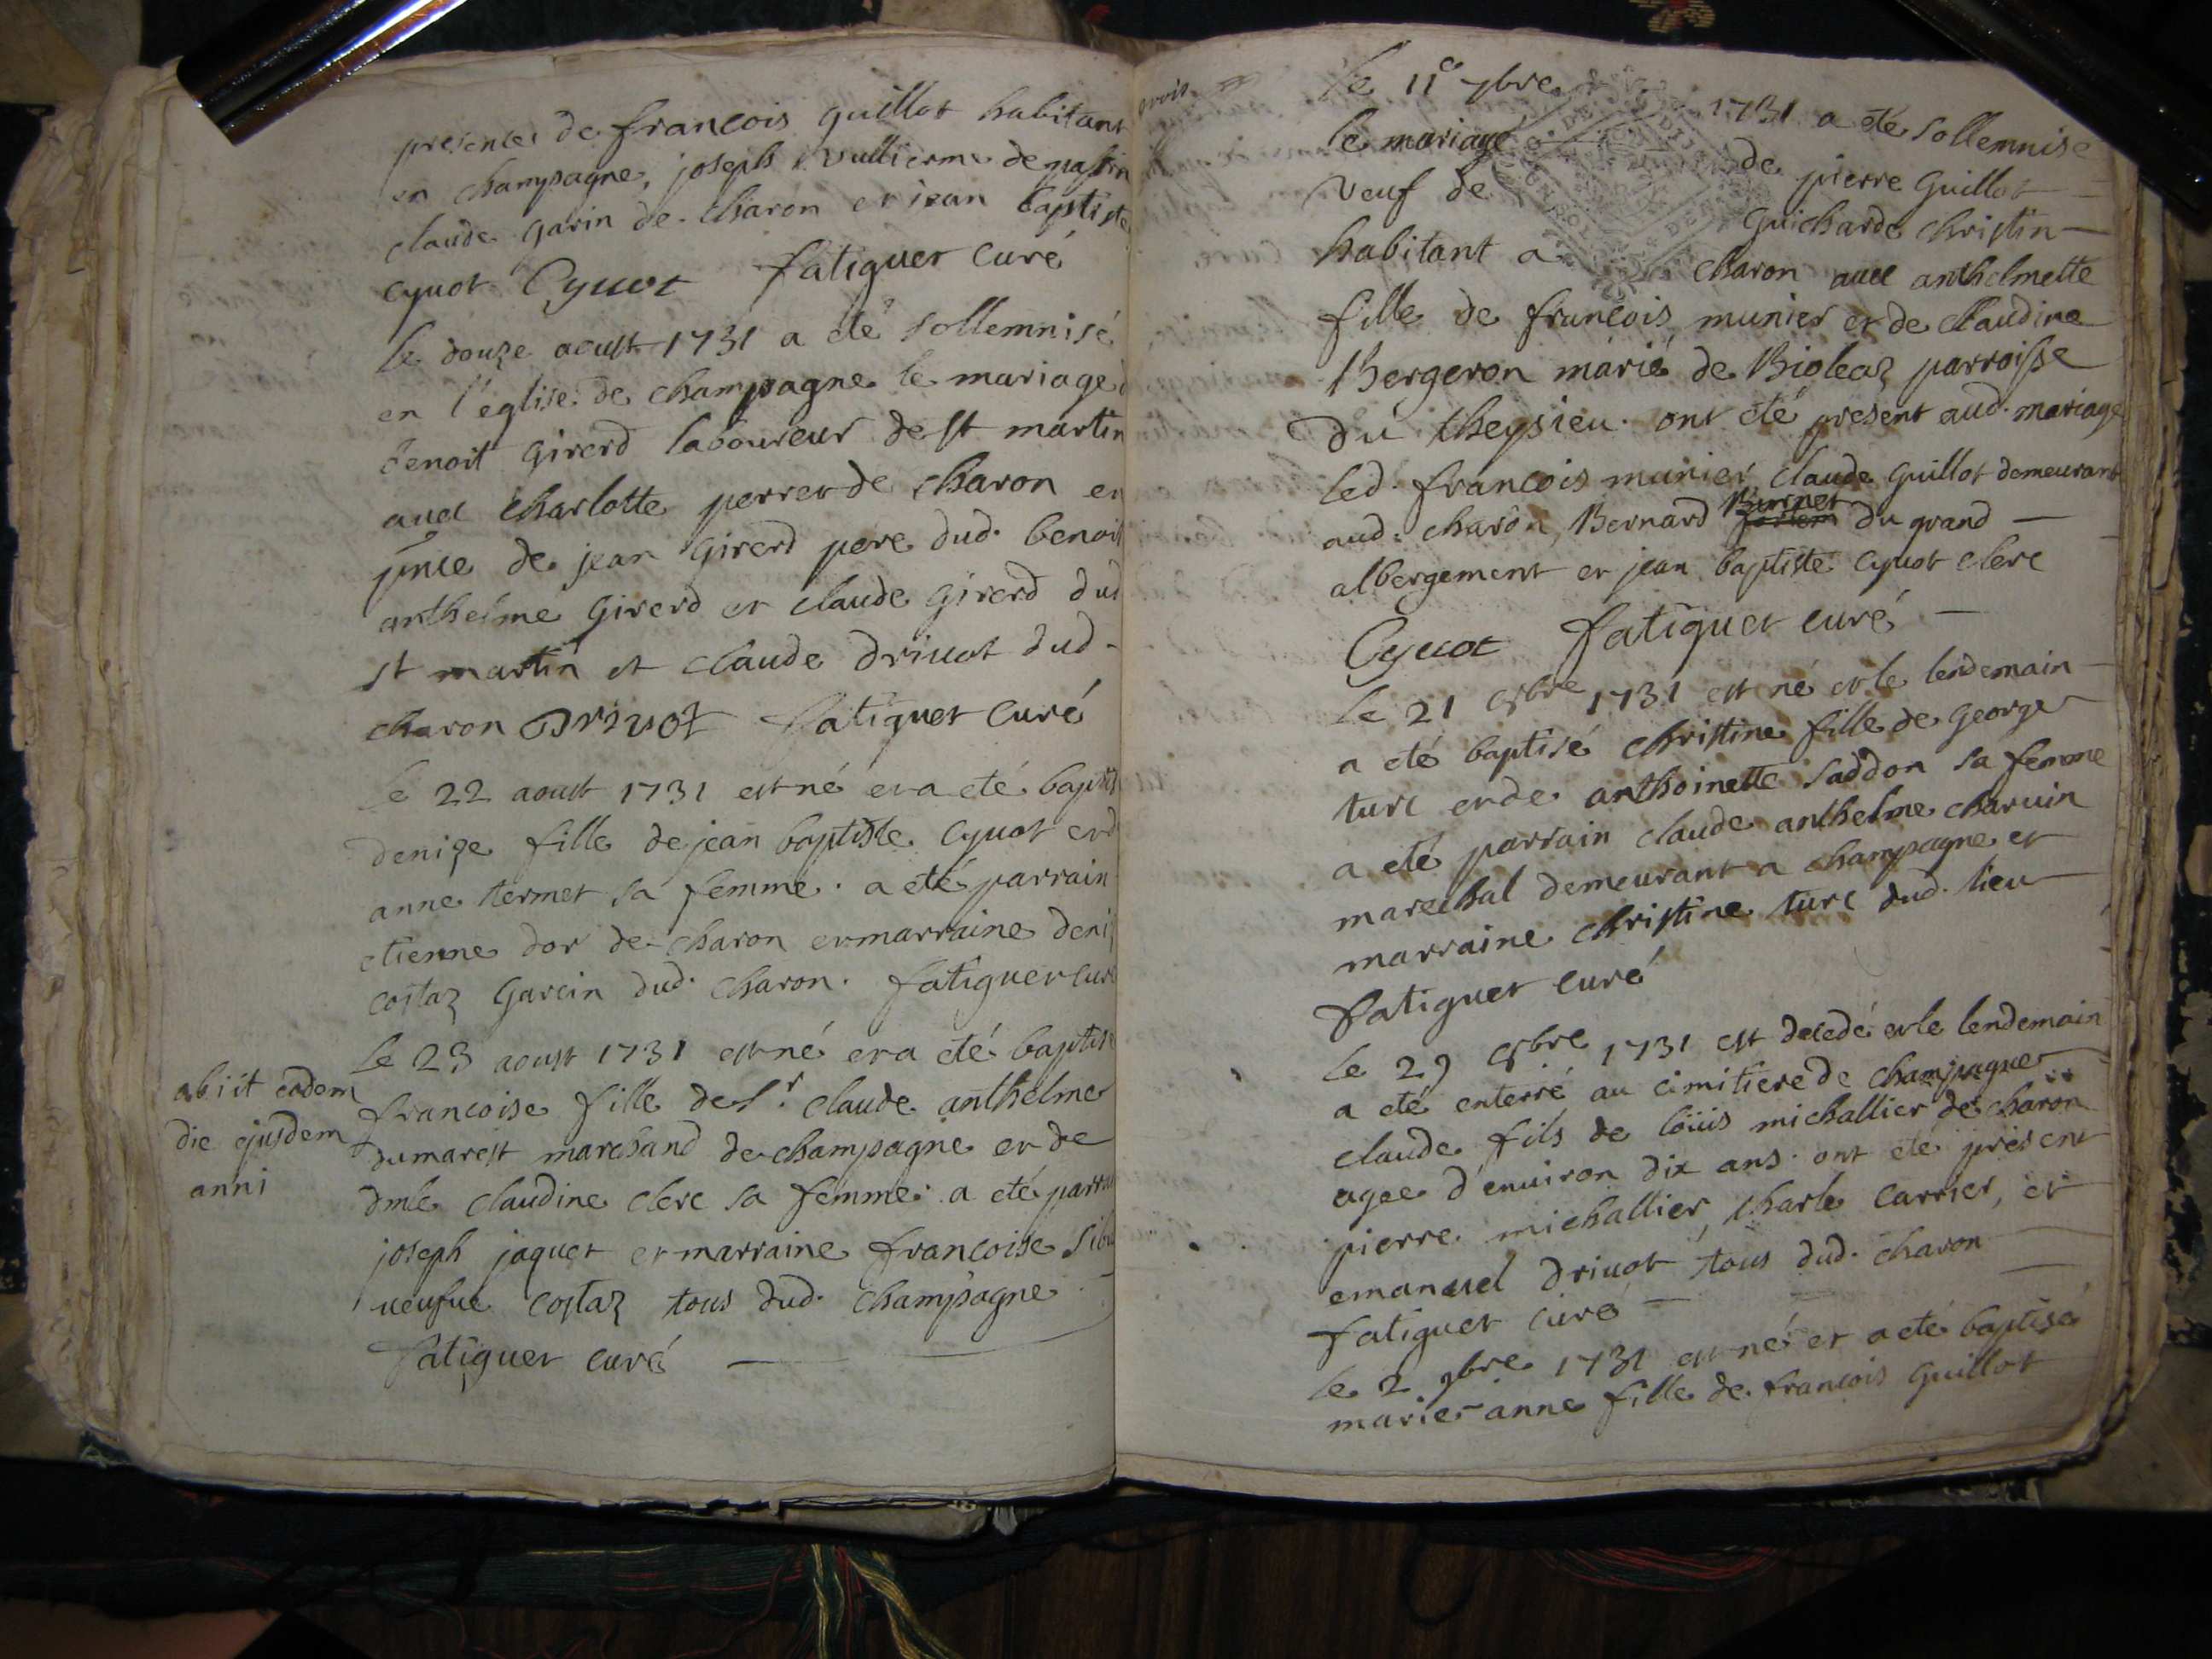 presences de francois guillot habitant
en champagne, joseph vullierme de passin
claude garin de charon et jean baptiste
cyuot Cyuot fatiguet curé
le douze aoust 1731 a eté sollemnisé
en l'eglise de champagne le mariage
benoit girerd laboureur de st martin
auec charlotte perret de charon en
pnce de jean girerd pere dud. benoit
anthelme girerd et claude girerd dud
st martin et claude driuot dud.
charon Driuot fatiguet curé
le 22 aoust 1731 est né et a eté baptis
denize fille de jean baptiste cyuot et d
anne termet sa femme. a eté parrain
etienne dor de charon et marraine deni
costaz garcin dud. charon. fatiguet curé
le 23 aoust 1731 est né et a eté baptisé
abiit eadem
die ejusdem
anni
francoise fille de Sr. claude anthelme
dumarest marchand de champagne et de
dmle claudine clerc sa femme. a eté parrai
joseph jaquet et marraine francoise
ueufue costaz tous dud. champagne
fatiguet curé
le 11e 7bre 1731 a eté sollemnisé
le mariage de pierre guillot
veuf de guicharde christin
habitant a charon auec anthelmette
fille de francois munier et de claudine
Bergeron marié de Bioleaz parroisse
du cheysieu. ont eté present aud. mariage
led. francois munier, claude guillot demeurant
aud. charon, Bernard Burnet du grand
albergement et jean baptiste cyuot clerc
Cyuot fatiguet curé
le 21 8bre 1731 est né et le lendemain
a eté baptisé christine fille de george
turc et de anthoinette saddon sa femme
a eté parrain claude anthelme charuin
marechal demeurant a champagne et
marraine christine turc dud. lieu
fatiguet curé
le 29 8bre 1731 est decedé et le lendemain
a eté enterré au cimitiere de champagne
claude fils de loüis michallier de charon
agee d'enuiron dix ans. ont eté present
pierre michallier, charle carrier, et
emanuel driuot tous dud. charon
fatiguet curé
le 2 9bre 1731 est né et a eté baptisé
marie-anne fille de francois guillot